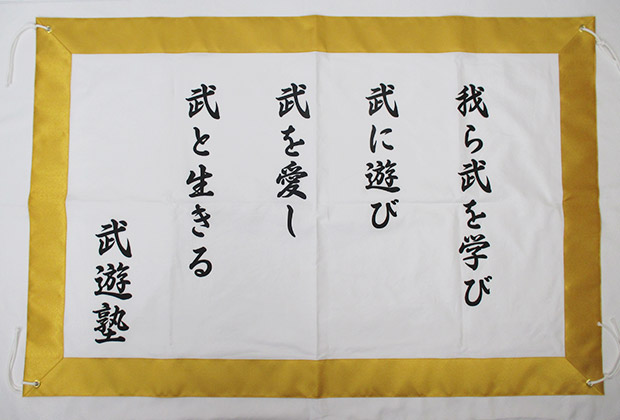 我ら武を学び
武に遊び
武を愛し
武と生きる
武遊塾